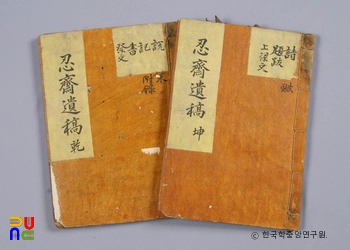 忍齋遺稿 乾
說
記
書
祭文
附錄
忍齋遺稿 坤
詩
題跋
上樑文
ⓒ 한국학중앙연구원